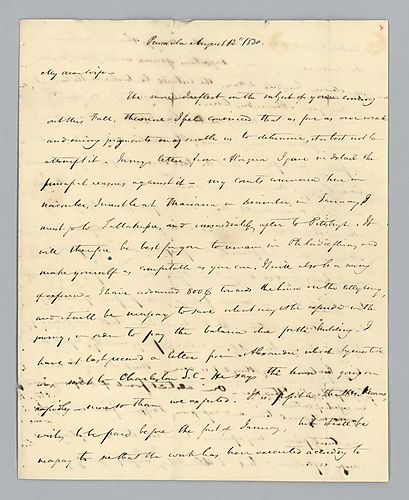 Pensacola August 12th 1830.
My dear wife –
The more I reflect on the subject of your coming
out this Fall, the more I feel convinced that as far as our weak
and erring judgments may enable us to determine, it is best not to
attempt it. In my letter from I gave in detail the
principal reasons against it – my courts commence here in
november, I must be at Mariana in December, in January I
must go to Tallahassee, and immediately after to Pittsburgh. It
will therefore be best for you to remain in Philadelphia, and
make yourself as comfortable as you can, it will also be a saving
of expense. I have advanced 800$ towards the house on the allegheny,
and it will be necessary to save what may otherwise be expended with
you, in order to pay the balance due for the building. I
have at last received a letter from Alexander which by mistake
was sent to Charleston S.C. – He says the house is going on
rapidly – more so than we expected. It is possible that the House
will be finished before the first of January, but it will be
necessary to see that the work has been executed according to